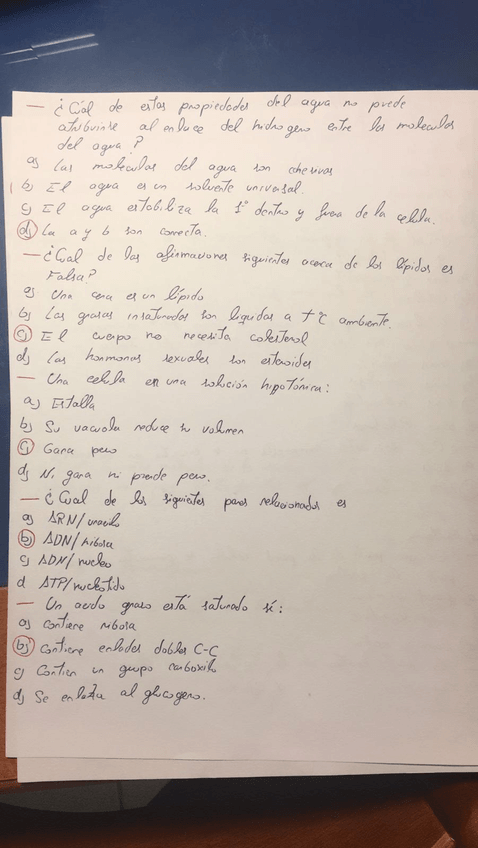 — ¿Cúal de estas propiedades del agua no puede
atribuirse al enlace del hidrogeno entre las moleculas
del agua?
a) Las moleculas del agua son cohesivas
b) El agua es un solvente universal.
c) El agua estabiliza la Tº dentro y fuera de la celula.
d) La a y b son correcta.
— ¿Cual de las afirmaciones siguientes acerca de los lípidos es
Falsa?
a) Una cera es un lípido
b) Las grasas insaturadas son liquidas a tªc ambiente.
c) El cuerpo no necesita colesterol
d) Las hormonas sexuales son esteroides
— Una celula en una solución hipotónica:
a) Estalla
b) Su vacuola reduce su volumen
c) Gana peso
d) Ni gana ni pierde peso.
— ¿Cual de los siguientes pares relacionados es
a) ARN/uracilo
b) ADN/ribosa
c) ADN/nucleo
d ATP/nucleotido
— Un acido graso está saturado si:
a) contiene ribosa
b) contiene enlaces dobles C-C
c) Contien un grupo carboxilo
d) Se enlaza al glucogeno.